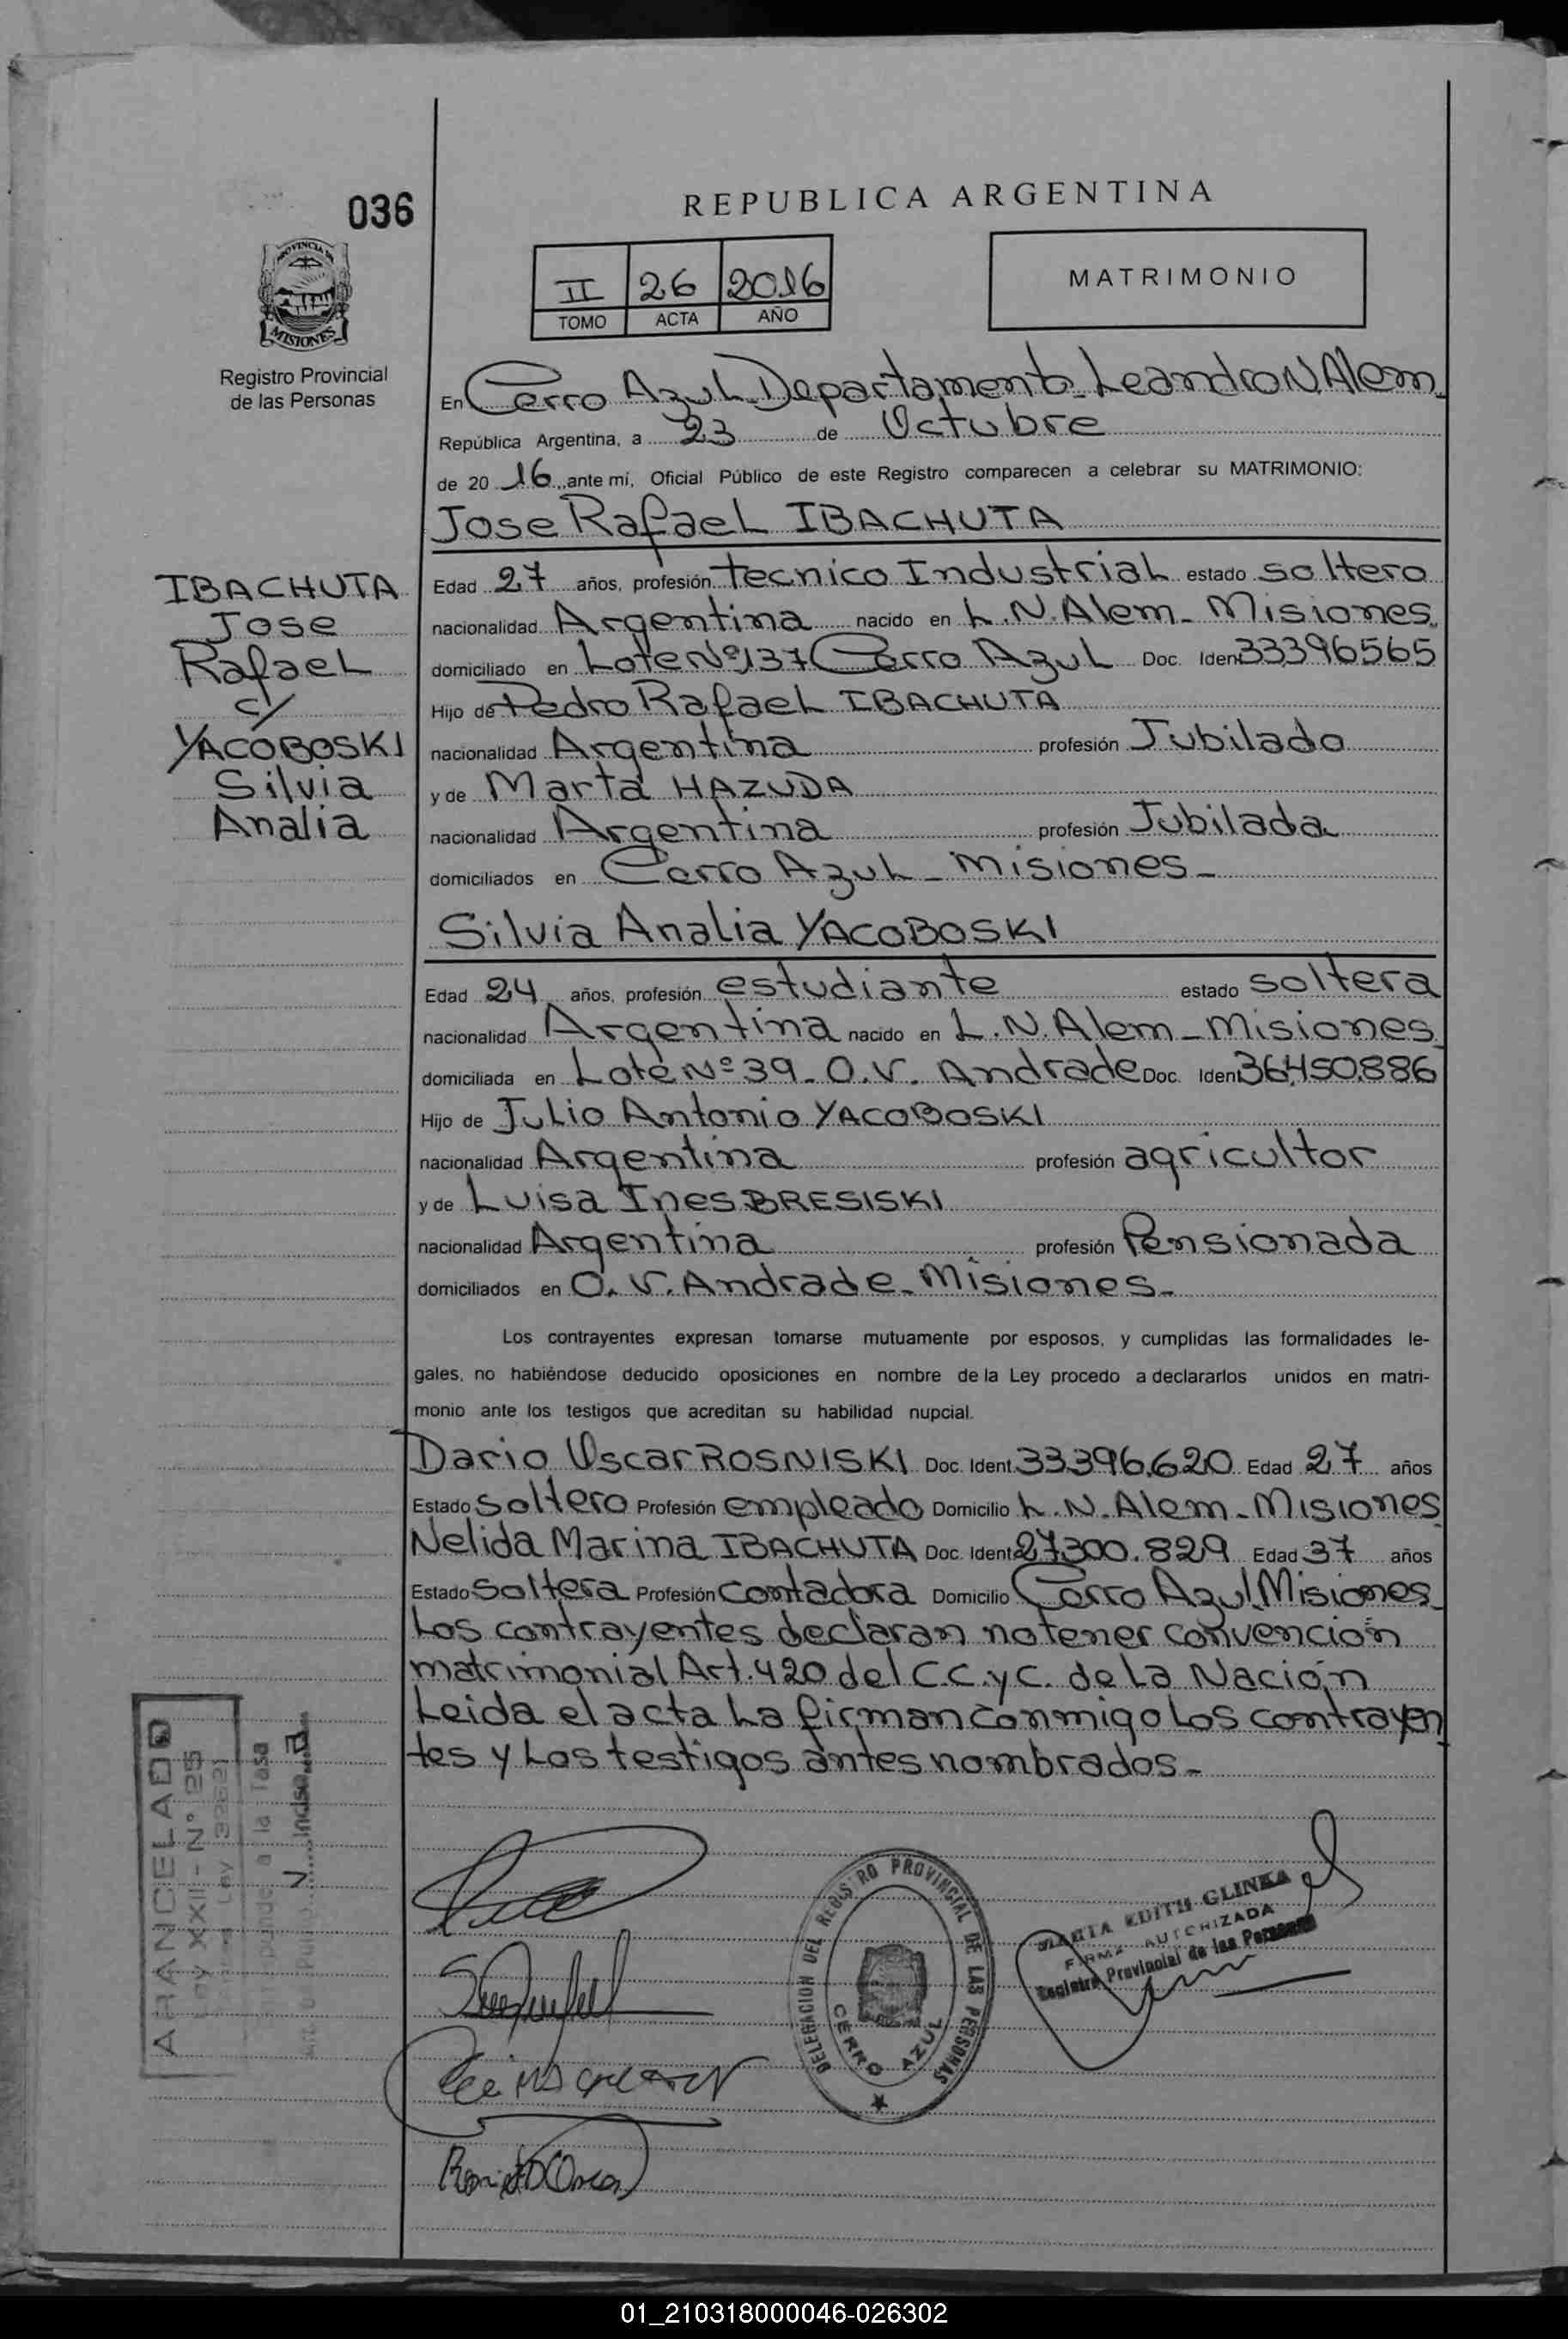 036
REPUBLICA ARGENTINA
PROVINCIA DE
MISIONES
Registro Provincial
de las Personas
II 26 2016
TOMO ACTA AÑO
MATRIMONIO
En Cerro Azul Departamento Leandro N Alem
República Argentina, a 23 de Octubre
de 20 16 ante mí, Oficial Público de este Registro comparecen a celebrar su MATRIMONIO:
Jose Rafael IBACHUTA
IBACHUTA
Jose
Rafael
c/
YACOBOSKI
Silvia
Analia
Edad 27 años, profesión tecnico Industrial estado soltero
nacionalidad Argentina nacido en L.N.Alem - Misiones
domiciliado en Lote Nº 137 Cerro Azul Doc. Ident 33396565
Hijo de Pedro Rafael IBACHUTA
nacionalidad Argentina profesión Jubilado
y de Marta HAZUDA
nacionalidad Argentina profesión Jubilada
domiciliados en Cerro Azul - Misiones -
Silvia Analia YACOBOSKI
Edad 24 años, profesión estudiante estado soltera
nacionalidad Argentina nacido en L.N.Alem - Misiones
domiciliada en Lote Nº 39 - O.V. Andrade Doc. Iden 36.450.886
Hijo de Julio Antonio YACOBOSKI
nacionalidad Argentina profesión agricultor
y de Luisa Ines BRESISKI
nacionalidad Argentina profesión Pensionada
domiciliados en O.V. Andrade - Misiones -
Los contrayentes expresan tomarse mutuamente por esposos, y cumplidas las formalidades le-
gales, no habiéndose deducido oposiciones en nombre de la Ley procedo a declararlos unidos en matri-
monio ante los testigos que acreditan su habilidad nupcial.
Dario Oscar ROSNISKI Doc. Ident. 33396.620 Edad 27 años
Estado soltero Profesión empleado Domicilio L.N. Alem - Misiones
Nelida Marina IBACHUTA Doc. Ident 27300.829 Edad 37 años
Estado soltera Profesión contadora Domicilio Cerro Azul Misiones
Los contrayentes declaran no tener convención
matrimonial Art. 420 del C.C. y C. de la Nación
Leida el acta la firman conmigo los contrayen
tes y los testigos antes nombrados -
ARANCELADO
Ley XXII - Nº 25
a la Tasa
Inciso a
DELEGACION DEL REGISTRO PROVINCIAL DE LAS PERSONAS
CERRO AZUL
MARTA EDITH GLINKA
FIRMA AUTORIZADA
Registro Provincial de las Personas
01_210318000046-026302